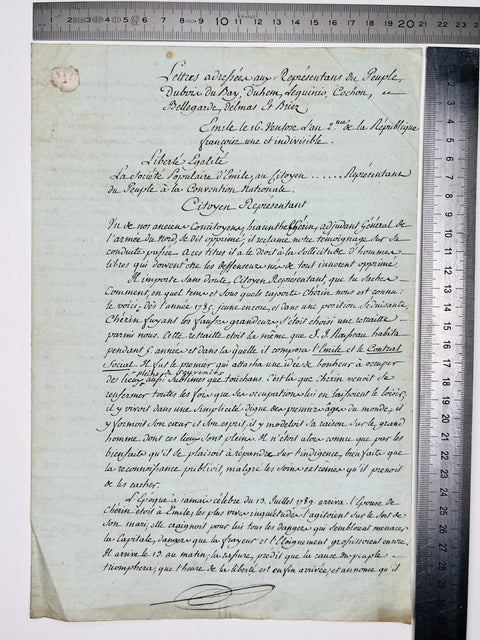 Lettres adressées aux Représentans du Peuple,
Dubois du Bay, Duhem, Lequinio, Cochon,
Bellegarde, delmas Et Briez
Emile le 16. Ventose L'an 2.me de la République
françoise une et indivisible.
Liberté Egalité
La Société Populaire d'Emile, au Citoyen ...... Représentant
du Peuple à la Convention Nationale.
Citoyen Représentant
Un de nos anciens Concitoyens, hiacinthe Chérin, adjudant Général de
l'armée du Nord, se dit opprimé, il reclame notre témoignage sur sa
conduite passée. A ces titres il a le droit à la Sollicitude d'hommes
libres qui doivent être les deffenseurs nés de tout innocent opprimé.
Il importe sans doute, Citoyen Représentant, que tu sache
Comment, en quel tems et sous quels raports Chérin nous est connu:
le voici, dès l'année 1785. jeune encore, et dans une position séduisante
Chérin fuyant les fausses grandeurs s'étoit choisi une retraitte
parmi nous. Cette retraitte étoit la même que J. J. Rousseau habita
pendant 5. années et dans la quelle il composa l'Emile et le Contrat
Social. Il fut le premier qui attacha une idée de bonheur à occuper
des lieux aussi sublimes que touchans. C'est là que Chérin venoit se
renfermer toutes les fois que ses occupations lui en laissoient le loisir,
il y vivoit dans une simplicité digne des premiers âges du monde, il
y formoit son cœur et son esprit, il y modeloit sa raison sur le grand
homme dont ces lieux sont pleins. Il n'étoit alors connu que par les
bienfaits qu'il se plaisoit à répandre sur l'indigence, bienfaits que
la reconnoissance publioit, malgré les soins extrêmes qu'il prenoit
de les cacher.
L'Epoque à jamais célèbre du 13. Juillet 1789. arriva. l'Epouse de
Chérin étoit à Emile; les plus vives inquiétudes l'agitoient sur le sort de
son mari; elle craignoit pour lui tous les dangers qui sembloient menacer
la Capitale, dangers que la frayeur et l'éloignement grossissoient encore.
Il arrive le 13 au matin, la rassure, prédit que la cause du peuple
triomphera, que l'heure de la liberté est enfin arrivée, et annonce qu'il